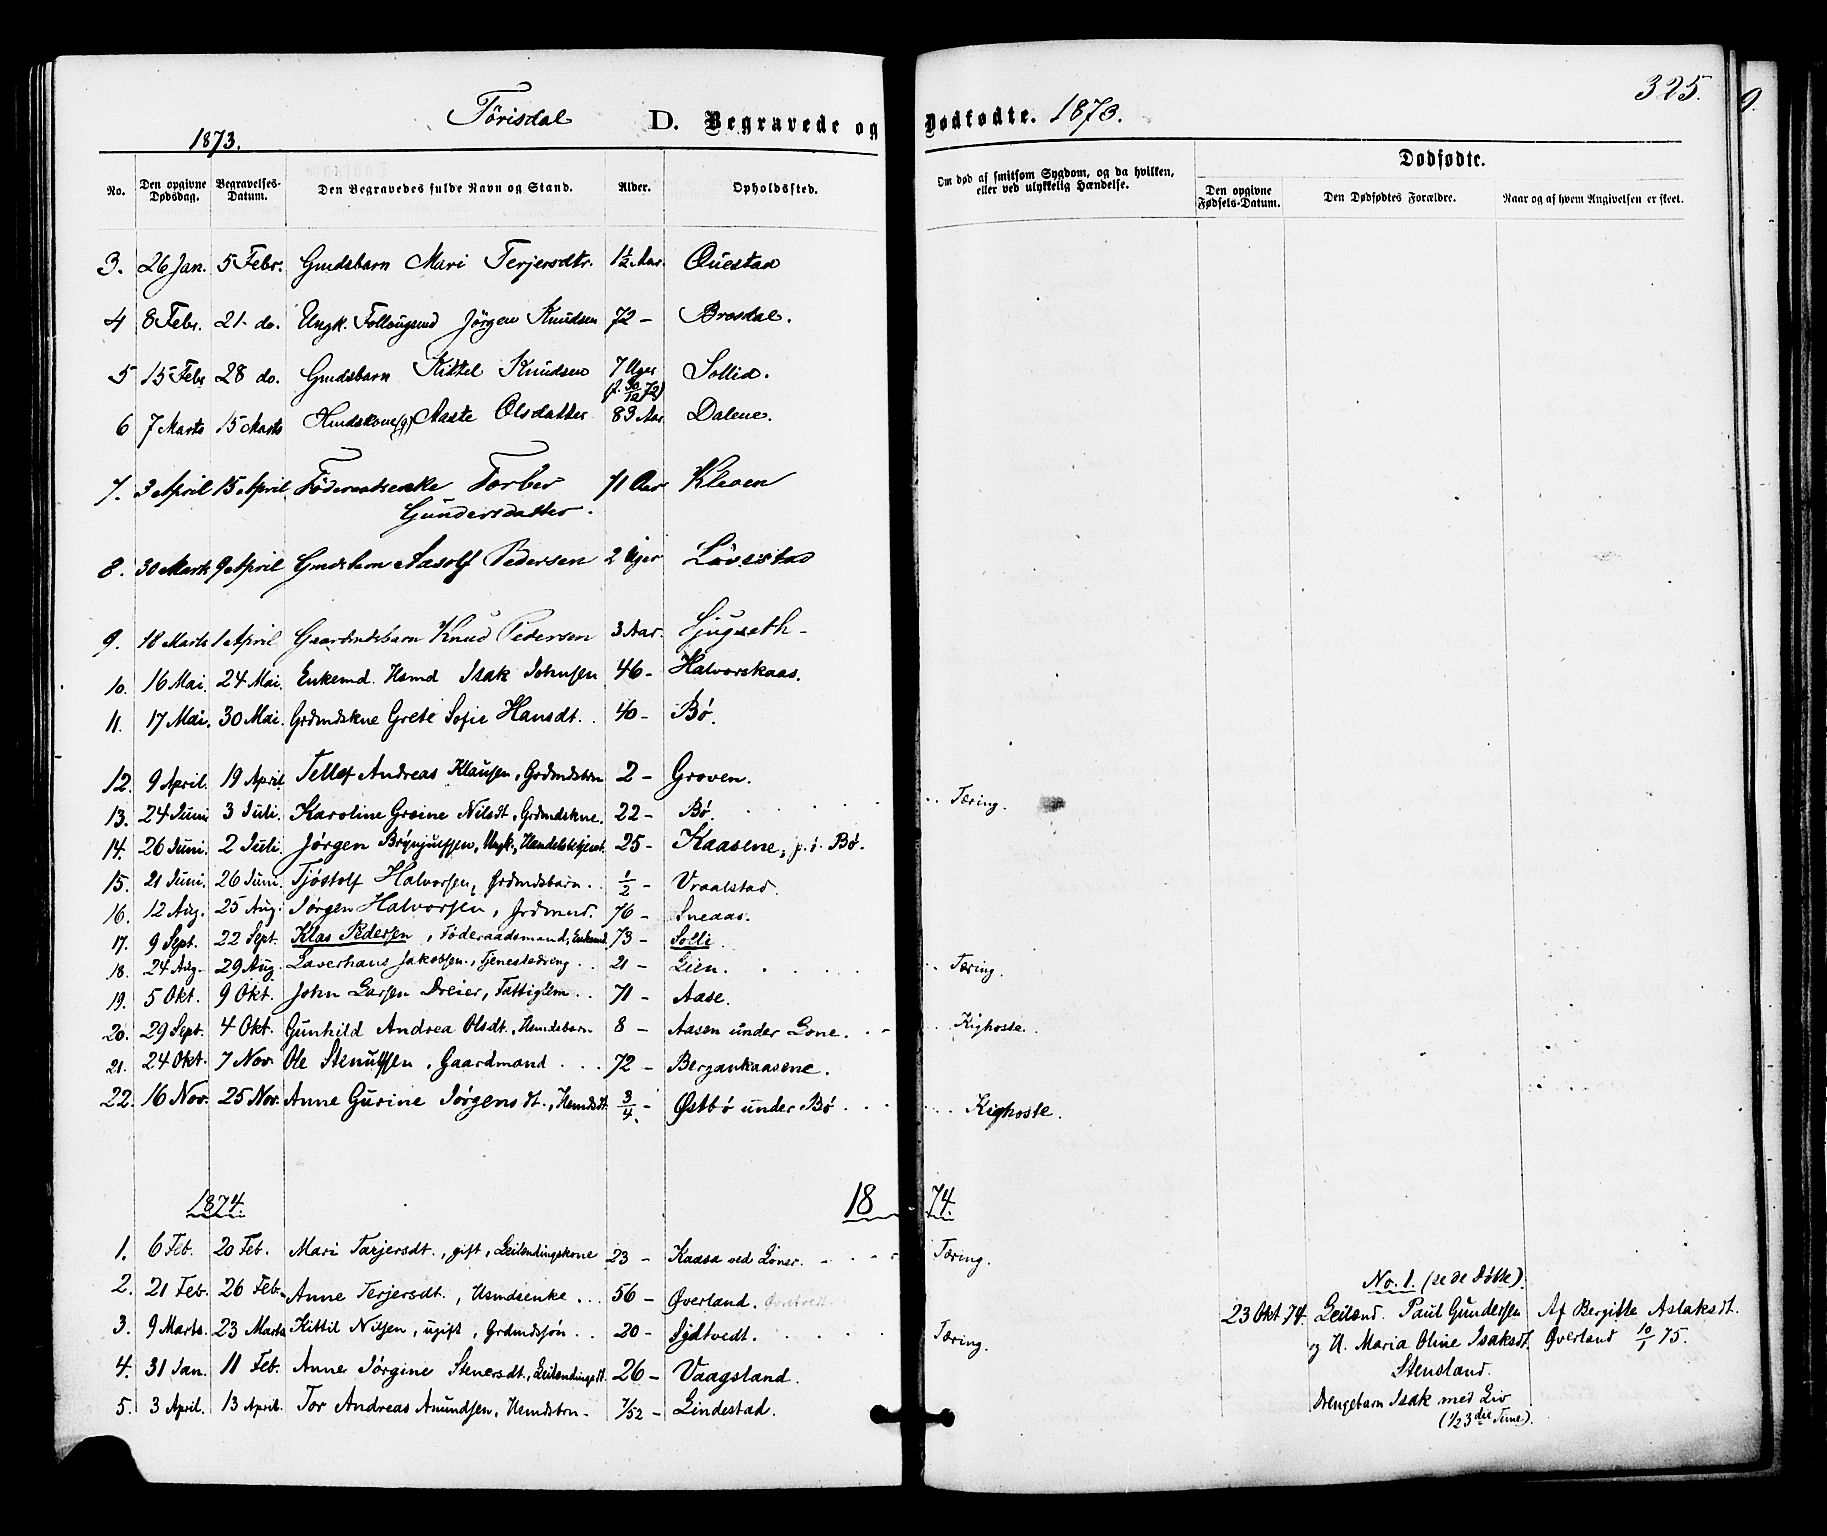 325.
Törisdal D. Begravede og Dødfødte. 1873.
1873.
No. Den opgivne Dødsdag. Begravelses-Datum. Den Begravedes fulde Navn og Stand. Alder. Opholdssted. Om død af smitsom Sygdom, og da hvilken, eller ved ulykkelig Hændelse. Dødfødte.
Den opgivne Fødsels-Datum. Den Dødfødtes Forældre. Naar og af hvem Angivelsen er skeet.
3. 26 Jan. 5 Febr. Gmdsbarn Mari Terjersdtr. 1½ Aar. Questad
4 8 Febr. 21 do. Ungk. Jörgen Knudsen 72 - Brosdal.
5 15 Febr 28 do. Gmdsbarn Kittel Knudsen 7 Uger Sollid.
(f. 30/12 72)
6 7 Marts 15 Marts Hmdskone (g) Aaste Olsdatter 83 Aar Dalene.
7. 3 April 15 April Föderaadsenke Torber 71 Aar Kleven
Gundersdatter.
8. 30 Marts 9 April Gmdsbarn Aasolf Pedersen 2 Uger Lövistad
9. 18 Marts 1 April Gaardmdsbarn Knud Pedersen 3 Aar. Ljugseth -
10. 16 Mai. 24 Mai. Enkemd. Hsmd Isak Johnsen 46 - Halvorskaas.
11. 17 Mai. 30 Mai. Grdmdskne Grete Sofie Hansdt. 40 - Bø.
12. 9 April. 19 April Tellef Andreas Klausen, Grdmdsbrn 2 - Groven.
13. 24 Juni 3 Juli. Karoline Groine Nilsdt, Grdmdskne. 22 - Bø. Tæring.
14. 26 Juni. 2 Juli. Jørgen Brynjulfsen, Ungk., Handelsbetjent. 25 - Kaasene, p. t. Bø.
15. 21 Juni. 26 Juni. Tjöstolf Halvorsen, Grdmdsbarn. ½ - Vraalstad.
16. 12 Aug. 25 Aug. Jörgen Halvorsen, Grdmnd. 76 - Sneaas.
17. 9 Sept. 22 Sept. Klas Pedersen, Föderaadsmand, Enkemd. 73 - Solli.
18. 24 Aug. 29 Aug. Laverhans Jakobsen, Tjenestedreng 21 - Lien. Tæring.
19. 5 Okt. 9 Okt. John Larsen Dreier, Fattiglem 71 - Aase.
20. 29 Sept. 4 Okt. Gunhild Andrea Olsdt., Hsmdsbarn 8 - Aasen under Lone. Kighoste.
21. 24 Okt. 7 Nov. Ole Stenulfsen, Gaardmand 72 - Bergankaasene.
22. 16 Nov. 25 Nov. Anne Gurine Jörgensdt., Hsmdsdt. 3/4 - Østbö under Bö Kighoste.
1874. 1874.
1. 6 Feb. 20 Feb. Mari Tarjersdt., gift, Leilendingskone 23 - Kaasa ved Loner. Tæring.
2. 21 Feb. 26 Feb. Anne Terjersdt., Hsmdsenke 56 - Øverland.
3. 9 Marts. 23 Marts Kittil Nilsen, ugift, Grdmdssön 20 - Sydtvedt. Tæring.
4. 31 Jan. 11 Feb. Anne Jörgine Stenersdt., Leilendingsdt. 26 - Vaagsland.
5. 3 April. 13 April. Tor Andreas Amundsen, Hsmdsbrn 7/52 - Lindestad.
No. 1. (se de Døbte).
23 Okt 74. Leilend. Paul Gundersen Af Bergitte Aslaksdt.
og H. Maria Oline Isaksdt. Øverland 10/1 75.
Stensland.
Drengebarn Isak med Liv
(1/2 3die Time).